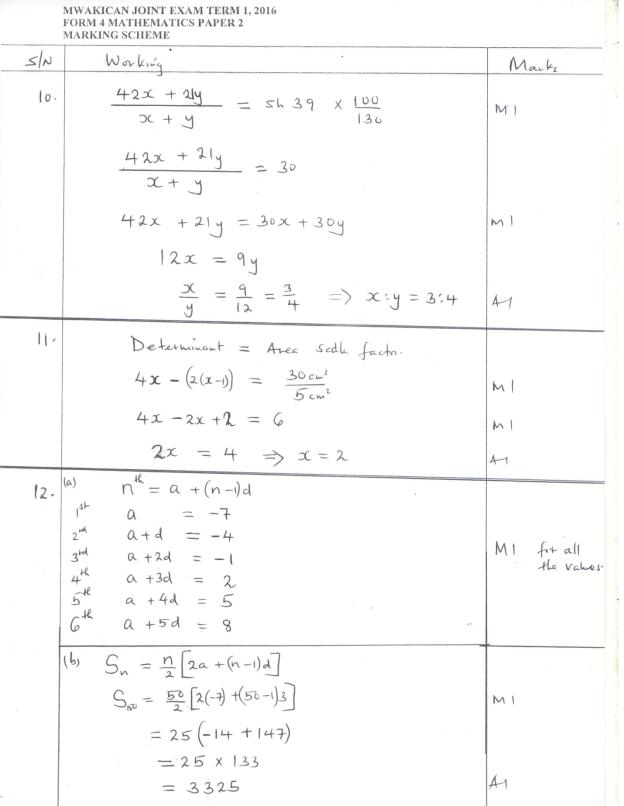 MWAKICAN JOINT EXAM TERM 1, 2016
FORM 4 MATHEMATICS PAPER 2
MARKING SCHEME
S/N Working Marks
10. (42x + 21y)/(x + y) = sh 39 × 100/130 M1
(42x + 21y)/(x + y) = 30
42x + 21y = 30x + 30y M1
12x = 9y
x/y = 9/12 = 3/4 => x:y = 3:4 A1
11. Determinant = Area scale factor.
4x - (2(x-1)) = 30cm²/5cm² M1
4x - 2x + 2 = 6 M1
2x = 4 => x = 2 A1
12. (a) nth = a + (n-1)d
1st a = -7
2nd a+d = -4
3rd a+2d = -1 M1 for all the values.
4th a+3d = 2
5th a+4d = 5
6th a+5d = 8
(b) Sn = n/2 [2a + (n-1)d]
S50 = 50/2 [2(-7) + (50-1)3] M1
= 25(-14 + 147)
= 25 × 133
= 3325 A1